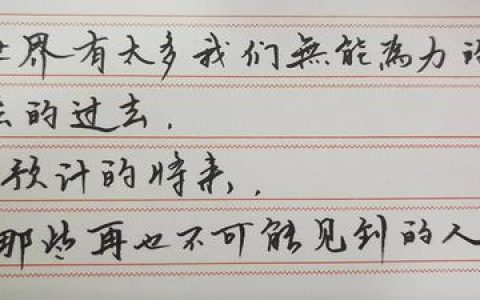 世界有太多我们無能為力的
的过去，
预计的将来，
那些再也不可能见到的人